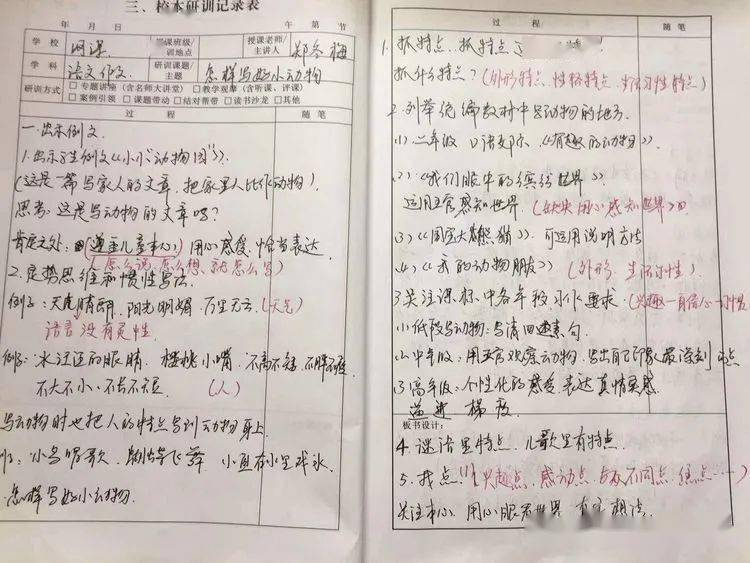 三、校本研训记录表
年 月 日 午 第 节
学校 网课 授课班级/训地点 授课老师/主讲人 郑冬梅
学科 语文作文 研训课题/主题 怎样写好小动物
研训方式 □专题讲座（含名师大讲堂） □教学观摩（含听课、评课）
□案例引领 □课题带动 □结对帮带 □读书沙龙 □其他
过程 随笔
一、出示例文
1.出示学生例文《小小"动物园"》.
(这是一篇写家人的文章，把家里人比作动物).
思考：这是写动物的文章吗？
肯定之处：(遵重儿童本心) 用心感受 恰当表达
(怎么说 怎么想 就怎么写
2.定势思维和惯性写法.
例1：天气晴朗，阳光明媚 万里无云 (天气)
语言没有灵性.
例2：水汪汪的眼睛，樱桃小嘴，不高不矮，不胖不瘦，
不大不小，不长不短 (人)
写动物时也把人的特点写到动物身上
例：小鸟唱歌，蝴蝶飞舞 小鱼在水里游泳.
怎样写好小动物.
过程 随笔
1.抓特点..抓特点
抓什么特点？(外形特点、性格特点、生活习性特点)
2.列举统编教材中写动物的地方.
(1)二年级 口语交际《有趣的动物》.
(2)《我们眼中的缤纷世界》
运用五官感知世界.(缺失用心感知世界)
(3)《国宝大熊猫》.可运用说明方法
(4)《我的动物朋友》(外形、生活习性).
3.关注课标中各年段习作要求.(兴趣—自信心—习惯
(1)低段写动物：写清四素句.
(2)中年级：用五官观察动物，写出自己印象最深刻
(3)高年级：个性化的感受 表达真情实感.
递进 梯度
板书设计：
4.谜语里特点、儿歌里有特点.
5.找点(兴趣点、感动点、与众不同点、焦点……)
关注本心、用心眼看世界 有 想法.